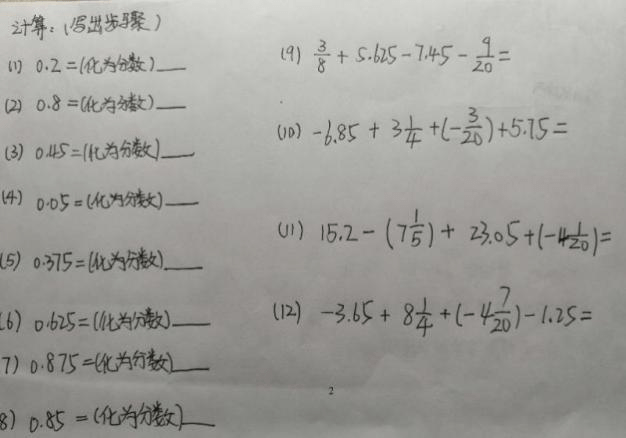 计算：（写出步骤）
(1) 0.2 =(化为分数)___
(2) 0.8 =(化为分数)___
(3) 0.45=(化为分数)___
(4) 0.05=(化为分数)___
(5) 0.375=(化为分数)___
(6) 0.625=(化为分数)___
(7) 0.875=(化为分数)___
(8) 0.85 =(化为分数)___
(9) 3/8 + 5.625-7.45-9/20=
(10) -6.85 + 3 1/4 +(-3/20)+5.75=
(11) 15.2-(7 1/5)+ 23.05+(-4 1/20)=
(12) -3.65 + 8 1/4 +(-4 7/20)-1.25=
2